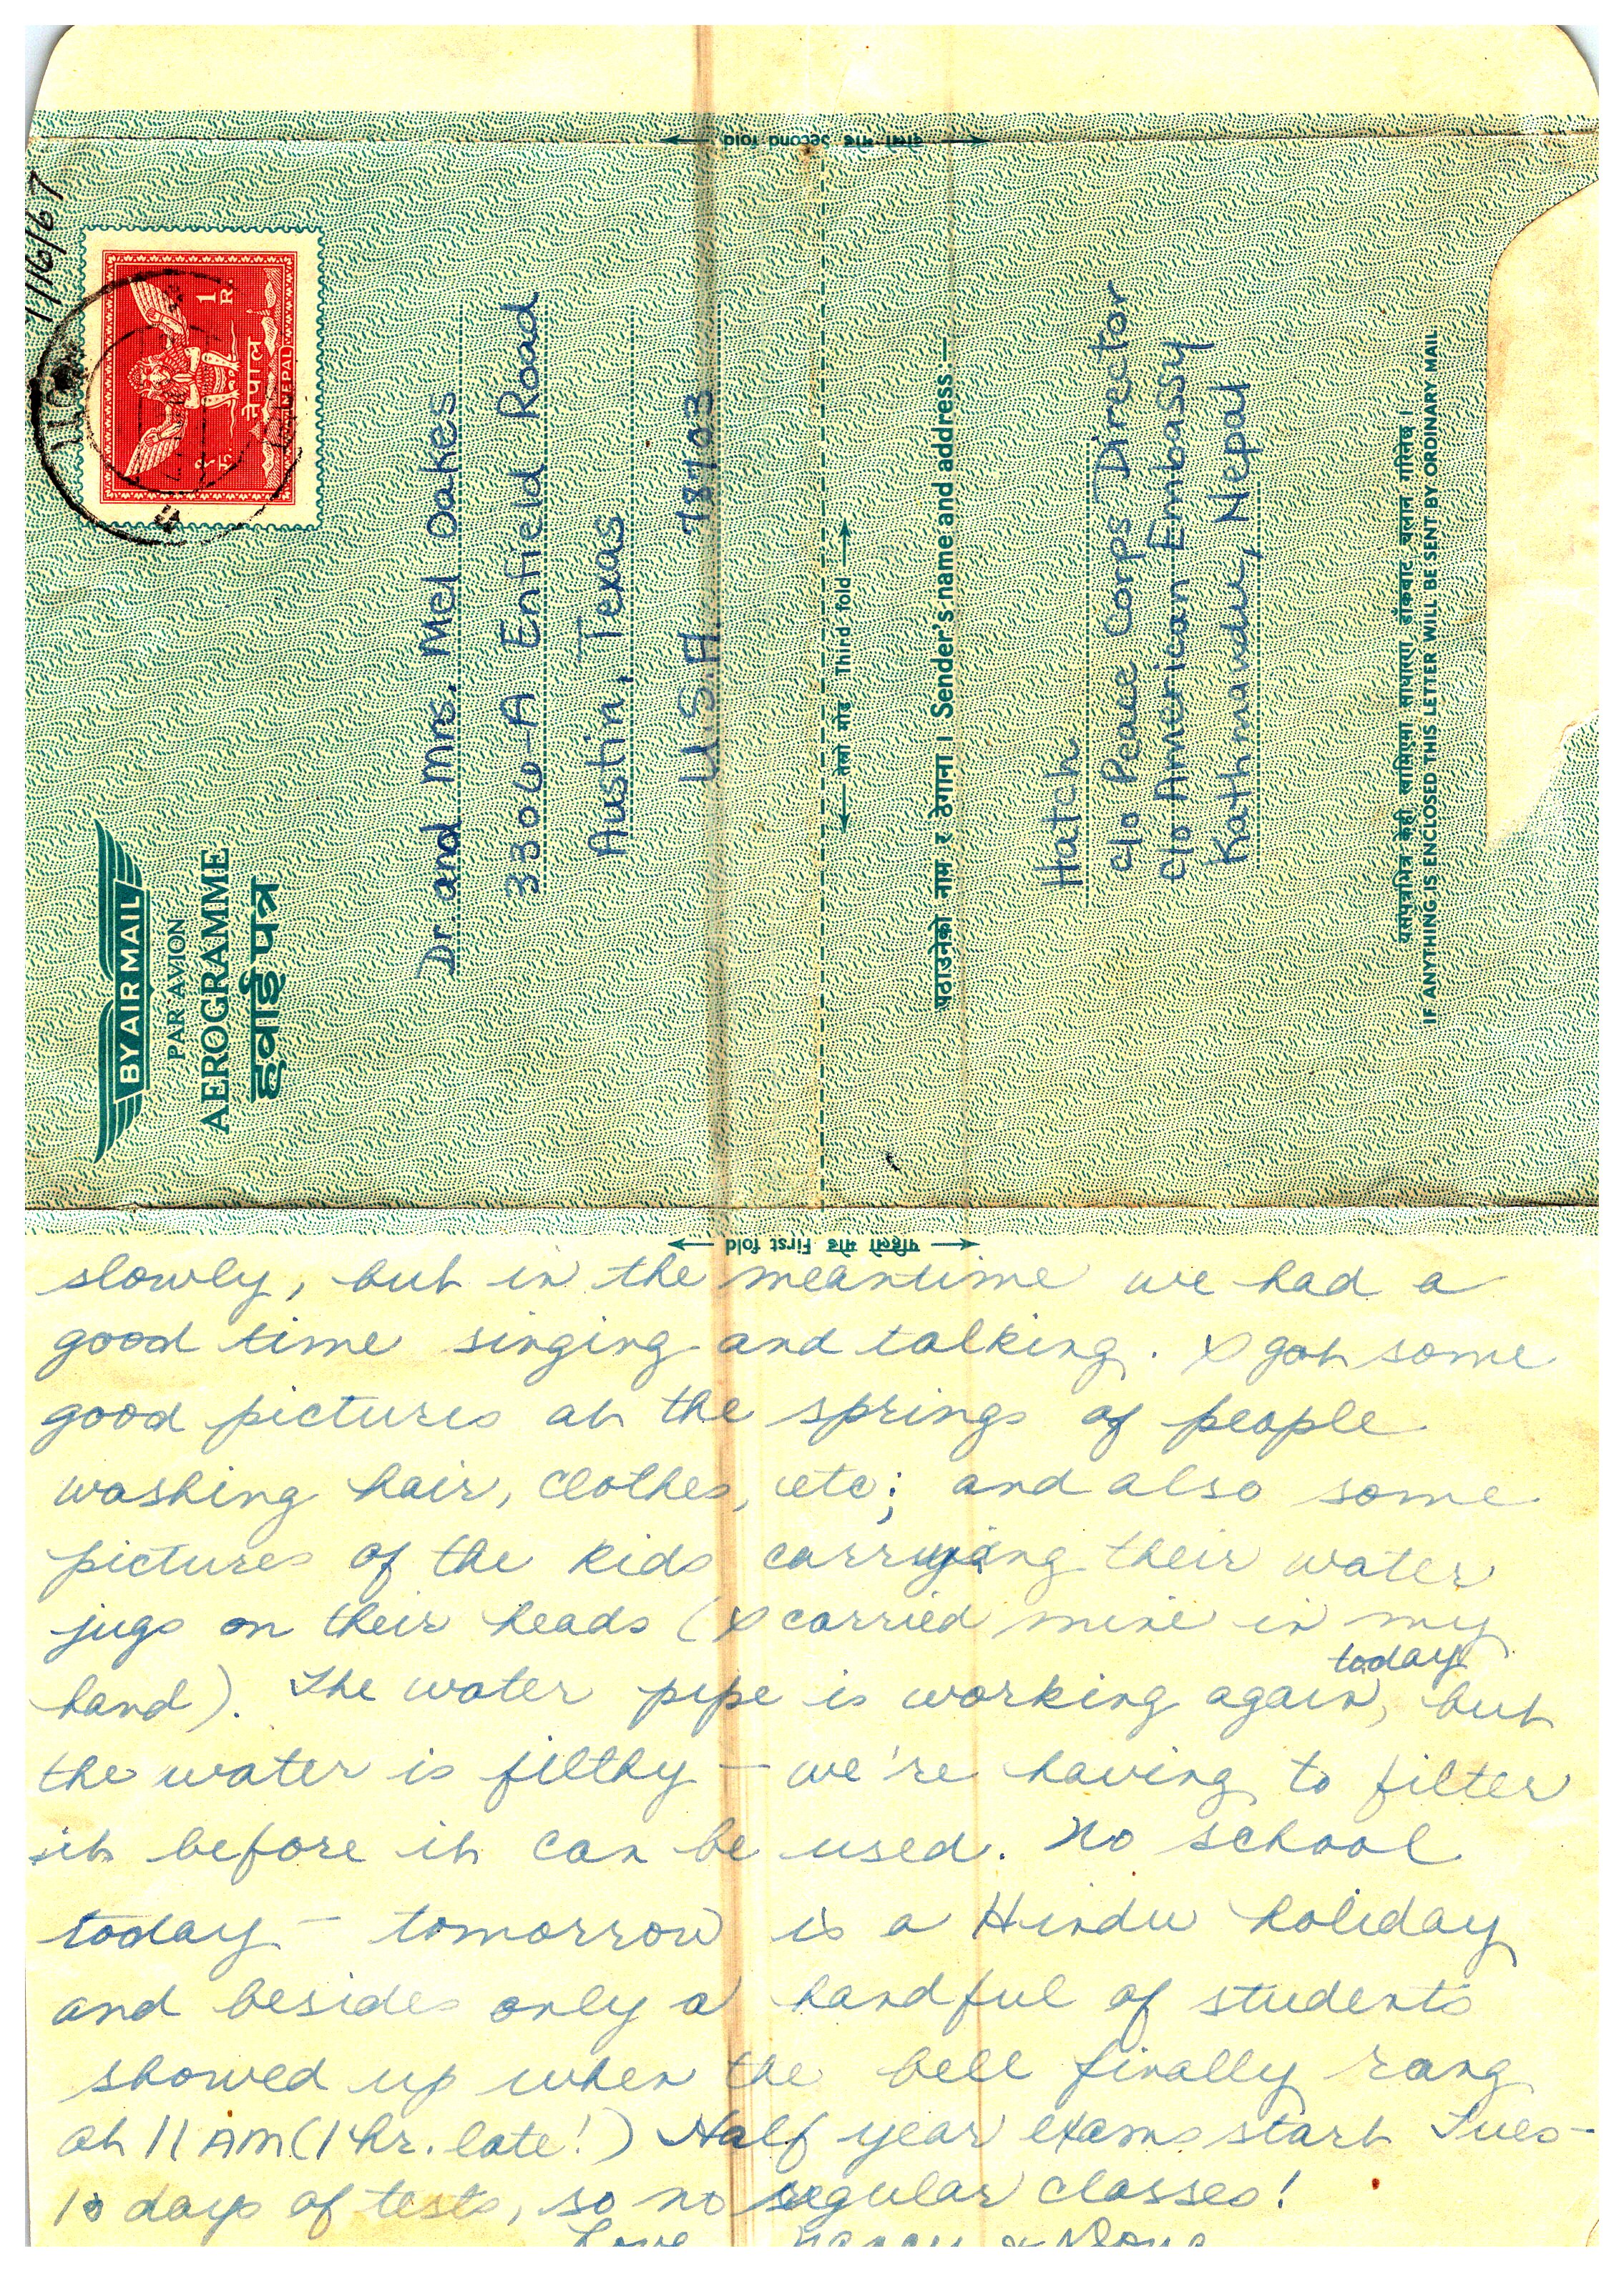 दोस्रो मोड Second fold
7/16/67
1 R.
१ रु.
नेपाल
NEPAL
BY AIR MAIL
PAR AVION
AEROGRAMME
हवाई पत्र
Dr. and Mrs. Mel Oakes
3306-A Enfield Road
Austin, Texas
U.S.A. 78703
तेस्रो मोड Third fold
पठाउनेको नाम र ठेगाना। Sender's name and address:—
Hatch
c/o Peace Corps Director
c/o American Embassy
Kathmandu, Nepal
यसपत्रभित्र केही खामिएमा साधारण डाँकबाट चलान गरिनेछ।
IF ANYTHING IS ENCLOSED THIS LETTER WILL BE SENT BY ORDINARY MAIL
पहिलो मोड First fold
slowly, but in the meantime we had a
good time singing and talking. I got some
good pictures at the springs of people
washing hair, clothes, etc; and also some
pictures of the kids carrying their water
jugs on their heads (I carried mine in my
hand). The water pipe is working again today, but
the water is filthy – we're having to filter
it before it can be used. No school
today – tomorrow is a Hindu holiday
and besides only a handful of students
showed up when the bell finally rang
at 11 AM (1 hr. late!) Half year exams start Tues–
10 days of tests, so no regular classes!
Love Nancy & Doug